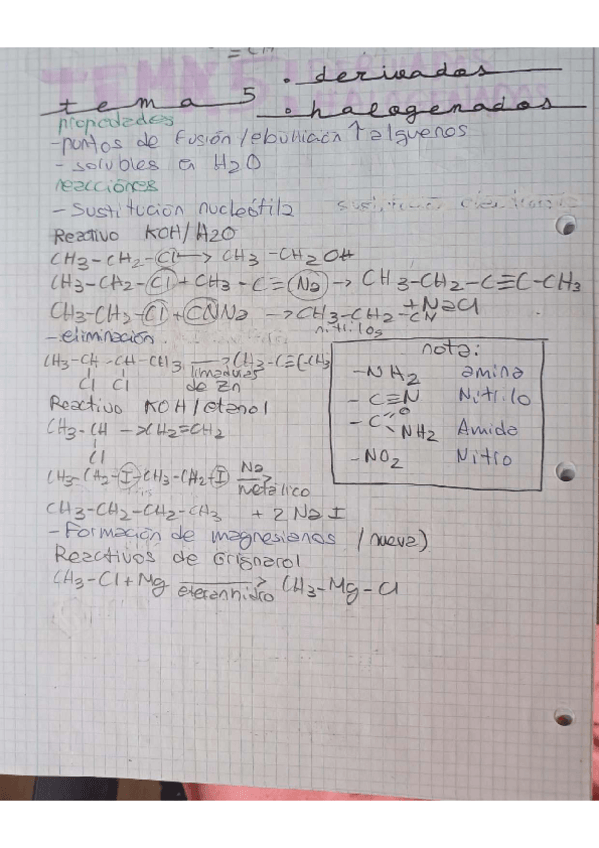 . derivados
tema 5 . halogenados
propiedades
-puntos de fusión/ebullición ↑ alquenos
- solubles en H2O
reacciónes
- Sustitución nucleófila
Reativo KOH/H2O
CH3-CH2-Cl -> CH3-CH2OH
CH3-CH2-Cl + CH3-C≡Na -> CH3-CH2-C≡C-CH3
+NaCl
CH3-CH2-Cl + CNNa -> CH3-CH2-CN
nitrilos
-eliminación.
CH3-CH-CH-CH3 -> CH3-C≡C-CH3
Cl Cl limaduras
de Zn
Reactivo KOH/etanol
CH3-CH -> CH2=CH2
Cl
CH3-CH2-I-CH3-CH2-I Na
metálico
CH3-CH2-CH2-CH3 + 2 NaI
- Formación de magnesianos (nueva)
Reactivos de Grignard
CH3-Cl+Mg -> CH3-Mg-Cl
nota:
-NH2 amina
-C≡N Nitrilo
-C=O
NH2 Amida
-NO2 Nitro